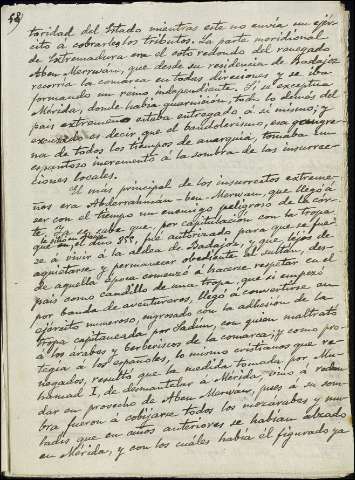 58
toridad del Estado mientras este no envia un ejér-
cito á cobrarles los tributos. La parte meridional
de Extremadura era el coto redondo del renegado
Aben Merwan, que desde su residencia de Badajoz
recorria la comarca en todas direcciones y se iba
formando un reino independiente. Si se exceptua
Mérida, donde habia guarnición, todo lo demás del
país extremeño estaba entregado á sí mismo; y
excusado es decir, que el bandolerismo, esa gangre-
na de todos los tiempos de anarquía, tomaba un
espantoso incremento á la sombra de las insurrec-
ciones locales.
El más principal de los insurrectos extreme-
ños era Abderrahman-ben Merwan, que llegó á
ser con el tiempo un enemigo peligroso de la cór-
te. Ya se sabe que, por capitulación con la tropa
que le sitió en
en el año fue autorizado para que se fue-
se á vivir á la aldea de Badajoz, y que lejos de
aquietarse y permanecer obediente al sultán, des-
de aquella época comenzó á hacerse respetar en el
país como caudillo de una tropa, que si empezó
por banda de aventureros, llegó á convertirse en
ejército numeroso, engrosado con la adhesión de la
tropa capitaneada por Sadun, con quien maltrató
á los árabes y berberiscos de la comarca; y como pro-
tegia á los españoles, lo mismo cristianos que re-
negados, resultó que la medida tomada por Mu-
hamad I, de desmantelar á Mérida, vino á redun-
dar en provecho de Aben Merwan, pues á su som-
bra fueron á cobijarse todos los mozarabes y mu-
ladís que en años anteriores se habian alzado
en Mérida, y con los cuales habia él figurado ya